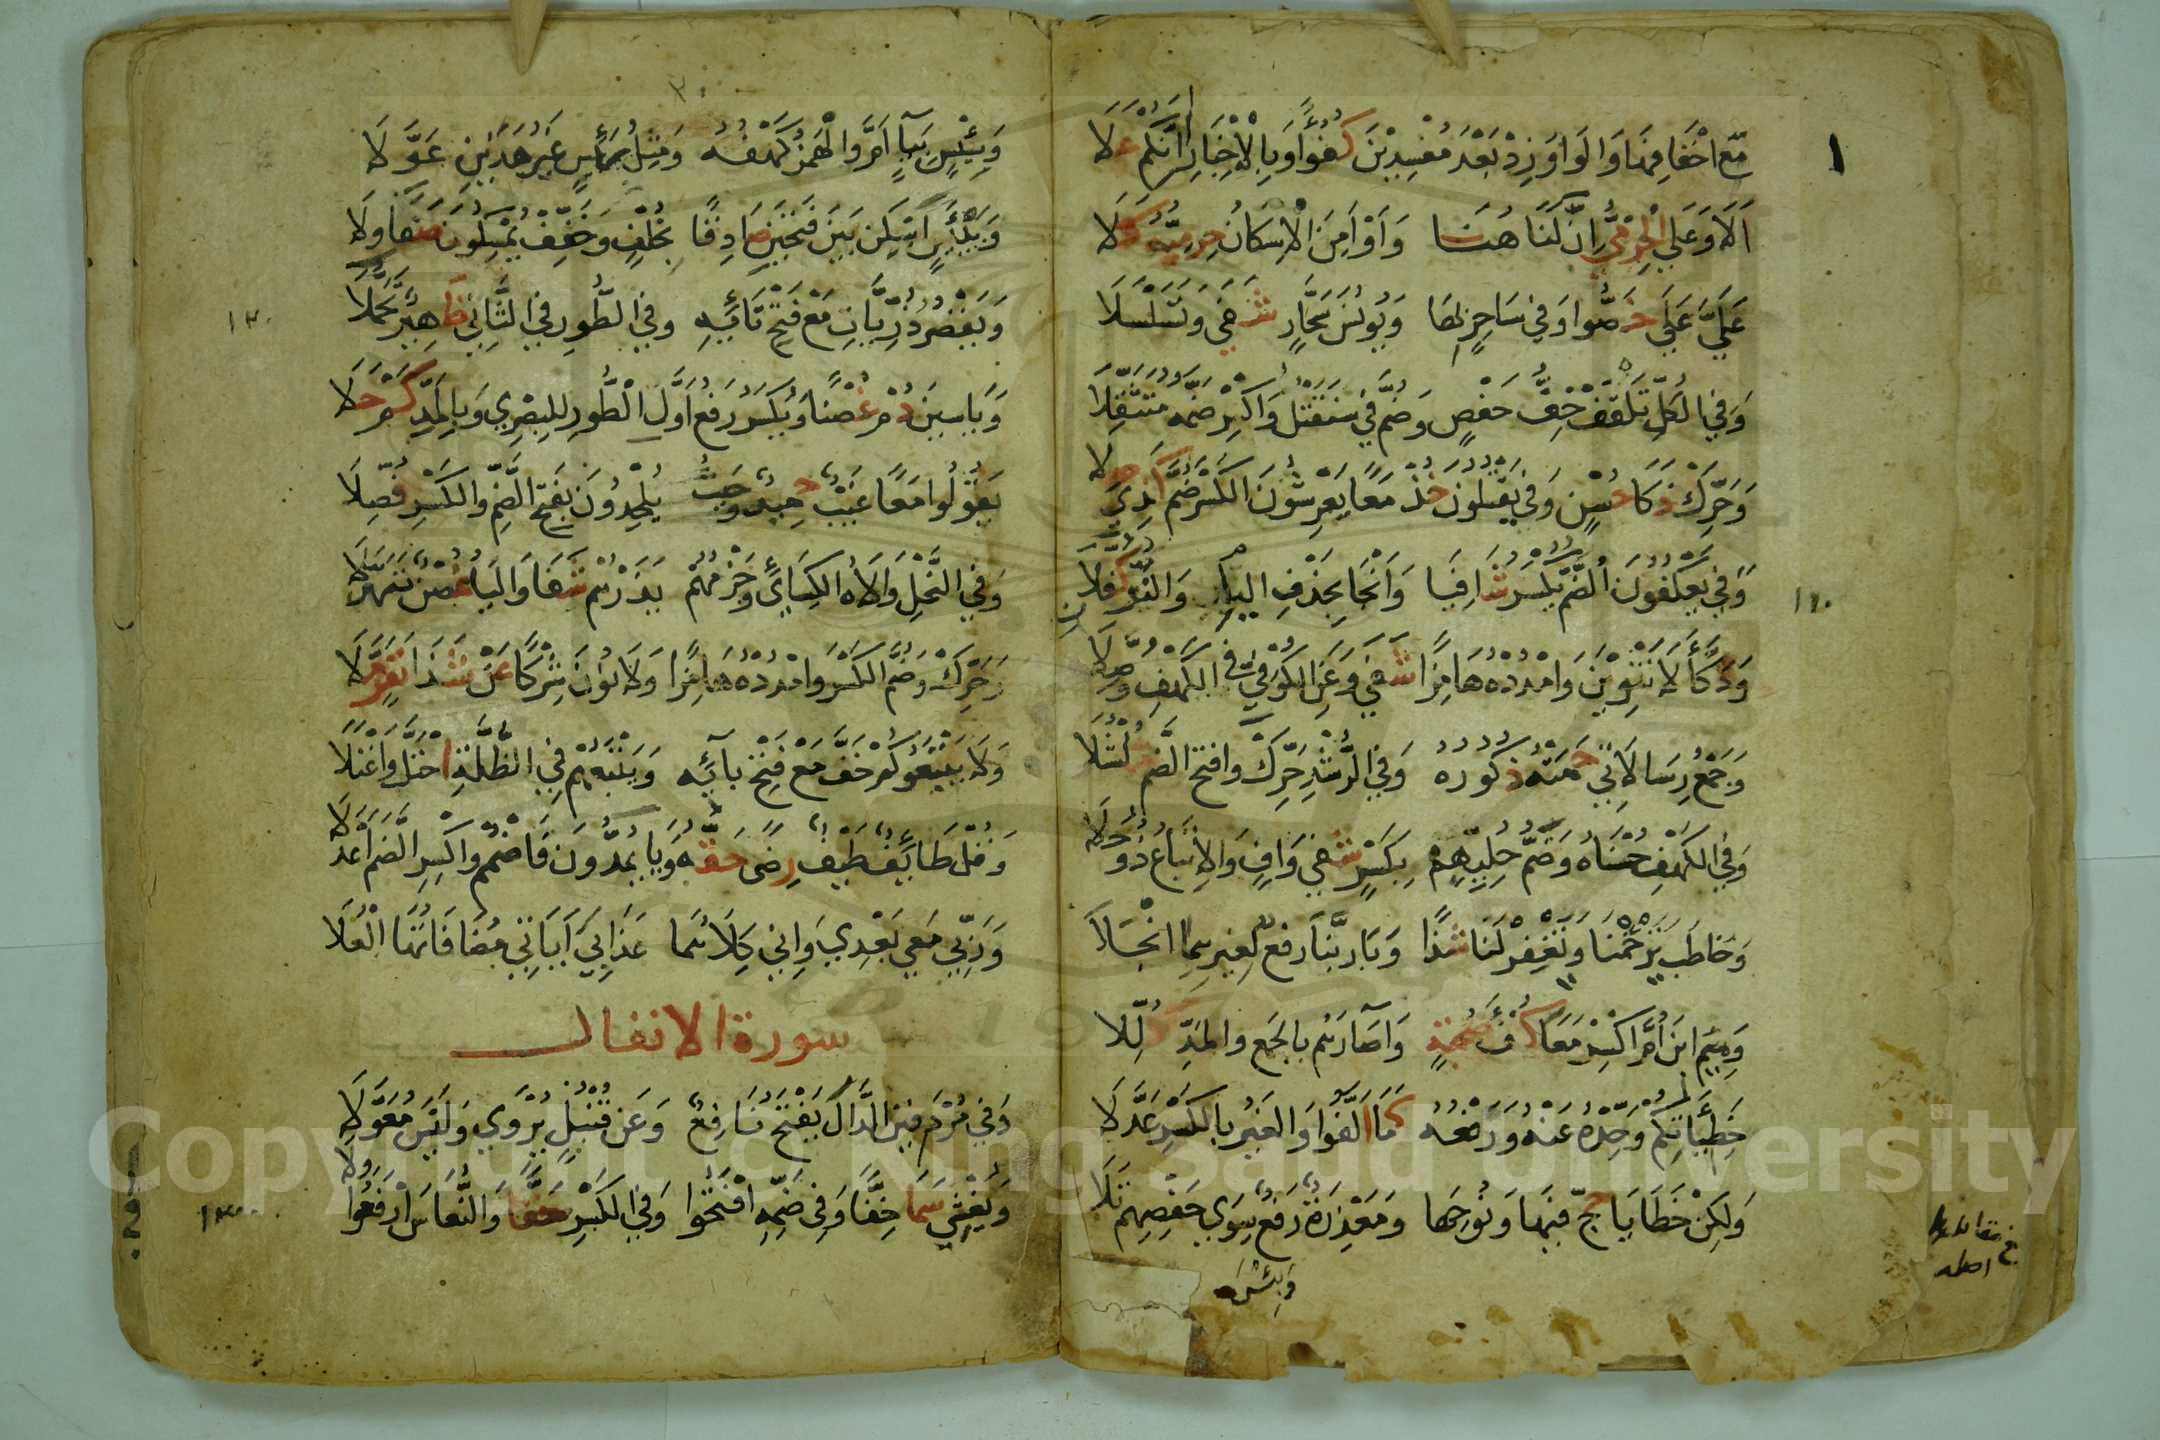 مَعَ احْقَافِهَا وَالْوَاوَ زِدْ بَعْدَ مُفْسِدِيْنَ كُفُؤًا وَبِالْإِخْبَارِ إِنَّكُمْ عَلَا
أَلَا وَعَلَى الْحِرْمِيُّ إِنَّ لَنَا هُنَا وَأَوْ أَمِنَ الْإِسْكَانُ حِرْمِيُّهُ كَلَا
عَلَيَّ عَلَى خَصُّوا وَفِي سَاحِرٍ بِهَا وَيُونُسَ سَحَّارٍ شَفَى وَتَسَلْسَلَا
وَفِي الْكُلِّ تَلْقَفْ خِفُّ حَفْصٍ وَضُمَّ فِي سَنَقْتُلُ وَاكْسِرْ ضَمَّهُ مُتَثَقِّلَا
وَحَرِّكْ ذَكَا حُسْنٍ وَفِي يَقْتُلُونَ خُذْ مَعًا يَعْرِشُونَ الْكَسْرَ ضُمَّ كَذِي حِلَا
وَفِي يَعْكُفُونَ الضَّمُّ يُكْسَرُ شَافِيَا وَأَنْجَا بِحَذْفِ الْيَاءِ وَالنُّونِ كُفِّلَا
وَدَكَّاءَ لَا تَنْوِيْنَ وَامْدُدْهُ هَامِزًا شَفَى وَعَنِ الْكُوْفِيِّ فِي الْكَهْفِ وُصِّلَا
وَجَمْعُ رِسَالَاتِي حَمَتْهُ ذُكُورُهُ وَفِي الرُّشْدِ حَرِّكْ وَافْتَحِ الضَّمَّ شُلْشُلَا
وَفِي الْكَهْفِ حُسْنَاهُ وَضَمُّ حُلِيِّهِمْ بِكَسْرٍ شَفَى وَافٍ وَالِاتْبَاعُ ذُو حُلَا
وَخَاطَبَ يَرْحَمْنَا وَيَغْفِرْ لَنَا شَذًا وَبَا رَبَّنَا رَفْعٌ لِغَيْرِهِمَا انْجَلَا
وَمِيْمَ ابْنَ أُمَّ اكْسِرْ مَعًا كُفْءَ صُحْبَةٍ وَآصَارَهُم بِالْجَمْعِ وَالْمَدِّ كُلِّلَا
خَطِيْئَاتِكُمْ وَحِّدْهُ عَنْهُ وَرَفْعُهُ كَمَا أَلَّفُوا وَالْغَيْرُ بِالْكَسْرِ عَدَّلَا
وَلَكِنْ خَطَايَا حَجَّ فِيْهَا وَنُوحِهَا وَمَعْذِرَةً رَفْعٌ سِوَى حَفْصِهِمْ تَلَا
وَبِئْسٍ
وَبِيْسٍ بِيَاءٍ أَمَّ وَالْهَمْزُ كَهْفُهُ وَمِثْلُ رَئِيْسٍ غَيْرُ هَذَيْنِ عَوَّلَا
وَبَيْئَسٍ اسْكِنْ بَيْنَ فَتْحَيْنِ صَادِقًا بِخُلْفٍ وَخَفِّفْ يُمْسِكُونَ صَفَا وِلَا
وَيَقْصُرُ ذُرِّيَّاتِ مَعْ فَتْحِ تَائِهِ وَفِي الطُّورِ فِي الثَّانِي ظَهِيْرٌ تَحَمَّلَا
وَيَاسِيْنَ دُمْ غُصْنًا وَيُكْسَرُ رَفْعُ أَوَّلِ الطُّورِ لِلْبَصْرِي وَبِالْمَدِّ كَمْ حَلَا
يَقُولُوا مَعًا غَيْبٌ حَمِيْدٌ وَحَيْثُ يُلْحِدُونَ بِفَتْحِ الضَّمِّ وَالْكَسْرِ فُصِّلَا
وَفِي النَّحْلِ وَالَاهُ الْكِسَائِيْ وَجَزْمُهُمْ يَذَرْهُمْ شَفَا وَالْيَاءُ غُصْنٌ تَهَدَّلَا
وَحَرِّكْ وَضُمَّ الْكَسْرَ وَامْدُدْهُ هَامِزًا وَلَا نُونَ شِرْكًا عَنْ شَذَا نَفَرٍ مَلَا
وَلَا يَتْبَعُوكُمْ خَفَّ مَعْ فَتْحِ بَائِهِ وَيَتْبَعُهُمْ فِي الظُّلَّةِ احْتَلَّ وَاعْتَلَا
وَقُلْ طَائِفٌ طَيْفٌ رِضًى حَقُّهُ وَيَا يَمُدُّونَ فَاضْمُمْ وَاكْسِرِ الضَّمَّ أَعْدَلَا
وَرَبِّي مَعِي بَعْدِي وَإِنِّي كِلَاهُمَا عَذَابِيَ آيَاتِي مُضَافَاتُهَا الْعُلَا
سورة الانفال
وَفِي مُرْدَفِيْنَ الدَّالَ يَفْتَحُ نَافِعٌ وَعَن قُنْبُلٍ يُرْوَى وَلَيْسَ مُعَوَّلَا
وَيُغْشِي سَمَا خِفًّا وَفِي ضَمِّهِ افْتَحُوا وَفِي الْكَسْرِ حَقًّا وَالنُّعَاسَ ارْفَعُوا وِلَا
Copyright © King Saud University